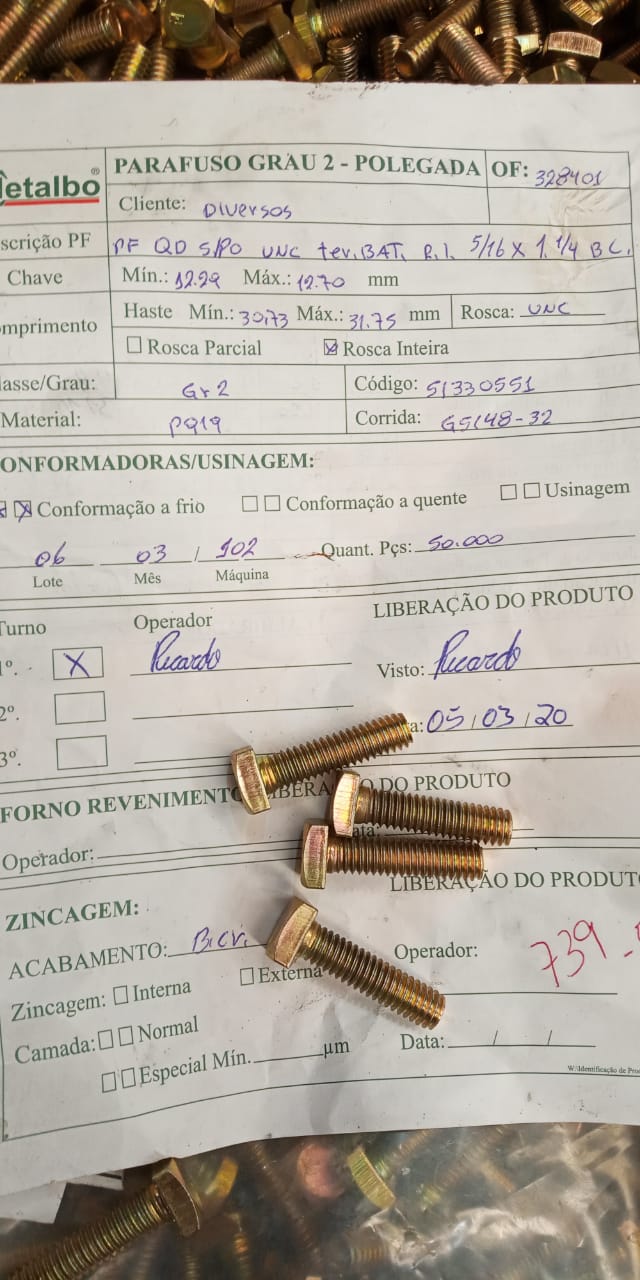 etalbo®
PARAFUSO GRAU 2 - POLEGADA OF: 328401
Cliente: Diversos
scrição PF PF QD S/PO UNC ter. BAT. R.I. 5/16 X 1.1/4 BC.
Chave Mín.: 12.29 Máx.: 12.70 mm
omprimento Haste Mín.: 30,73 Máx.: 31.75 mm Rosca: UNC
☐ Rosca Parcial ☒ Rosca Inteira
lasse/Grau: Gr2 Código: 51330551
Material: PQ19 Corrida:
ONFORMADORAS/USINAGEM:
☒ Conformação a frio ☐☐ Conformação a quente ☐☐ Usinagem
06 03 / 102 Quant. Pçs: 50.000
Lote Mês Máquina
Turno Operador LIBERAÇÃO DO PRODUTO
1º. X Ricardo Visto: Ricardo
2º.
a: 05/03/20
3º.
FORNO REVENIMENTO LIBERA O DO PRODUTO
Operador: ata:
ZINCAGEM: LIBERAÇÃO DO PRODUTO
ACABAMENTO: B.cr. Operador: 739
Zincagem: ☐ Interna ☐ Externa
Camada: ☐☐ Normal Data: / /
☐☐ Especial Mín. µm
W:\Identificação de Pro